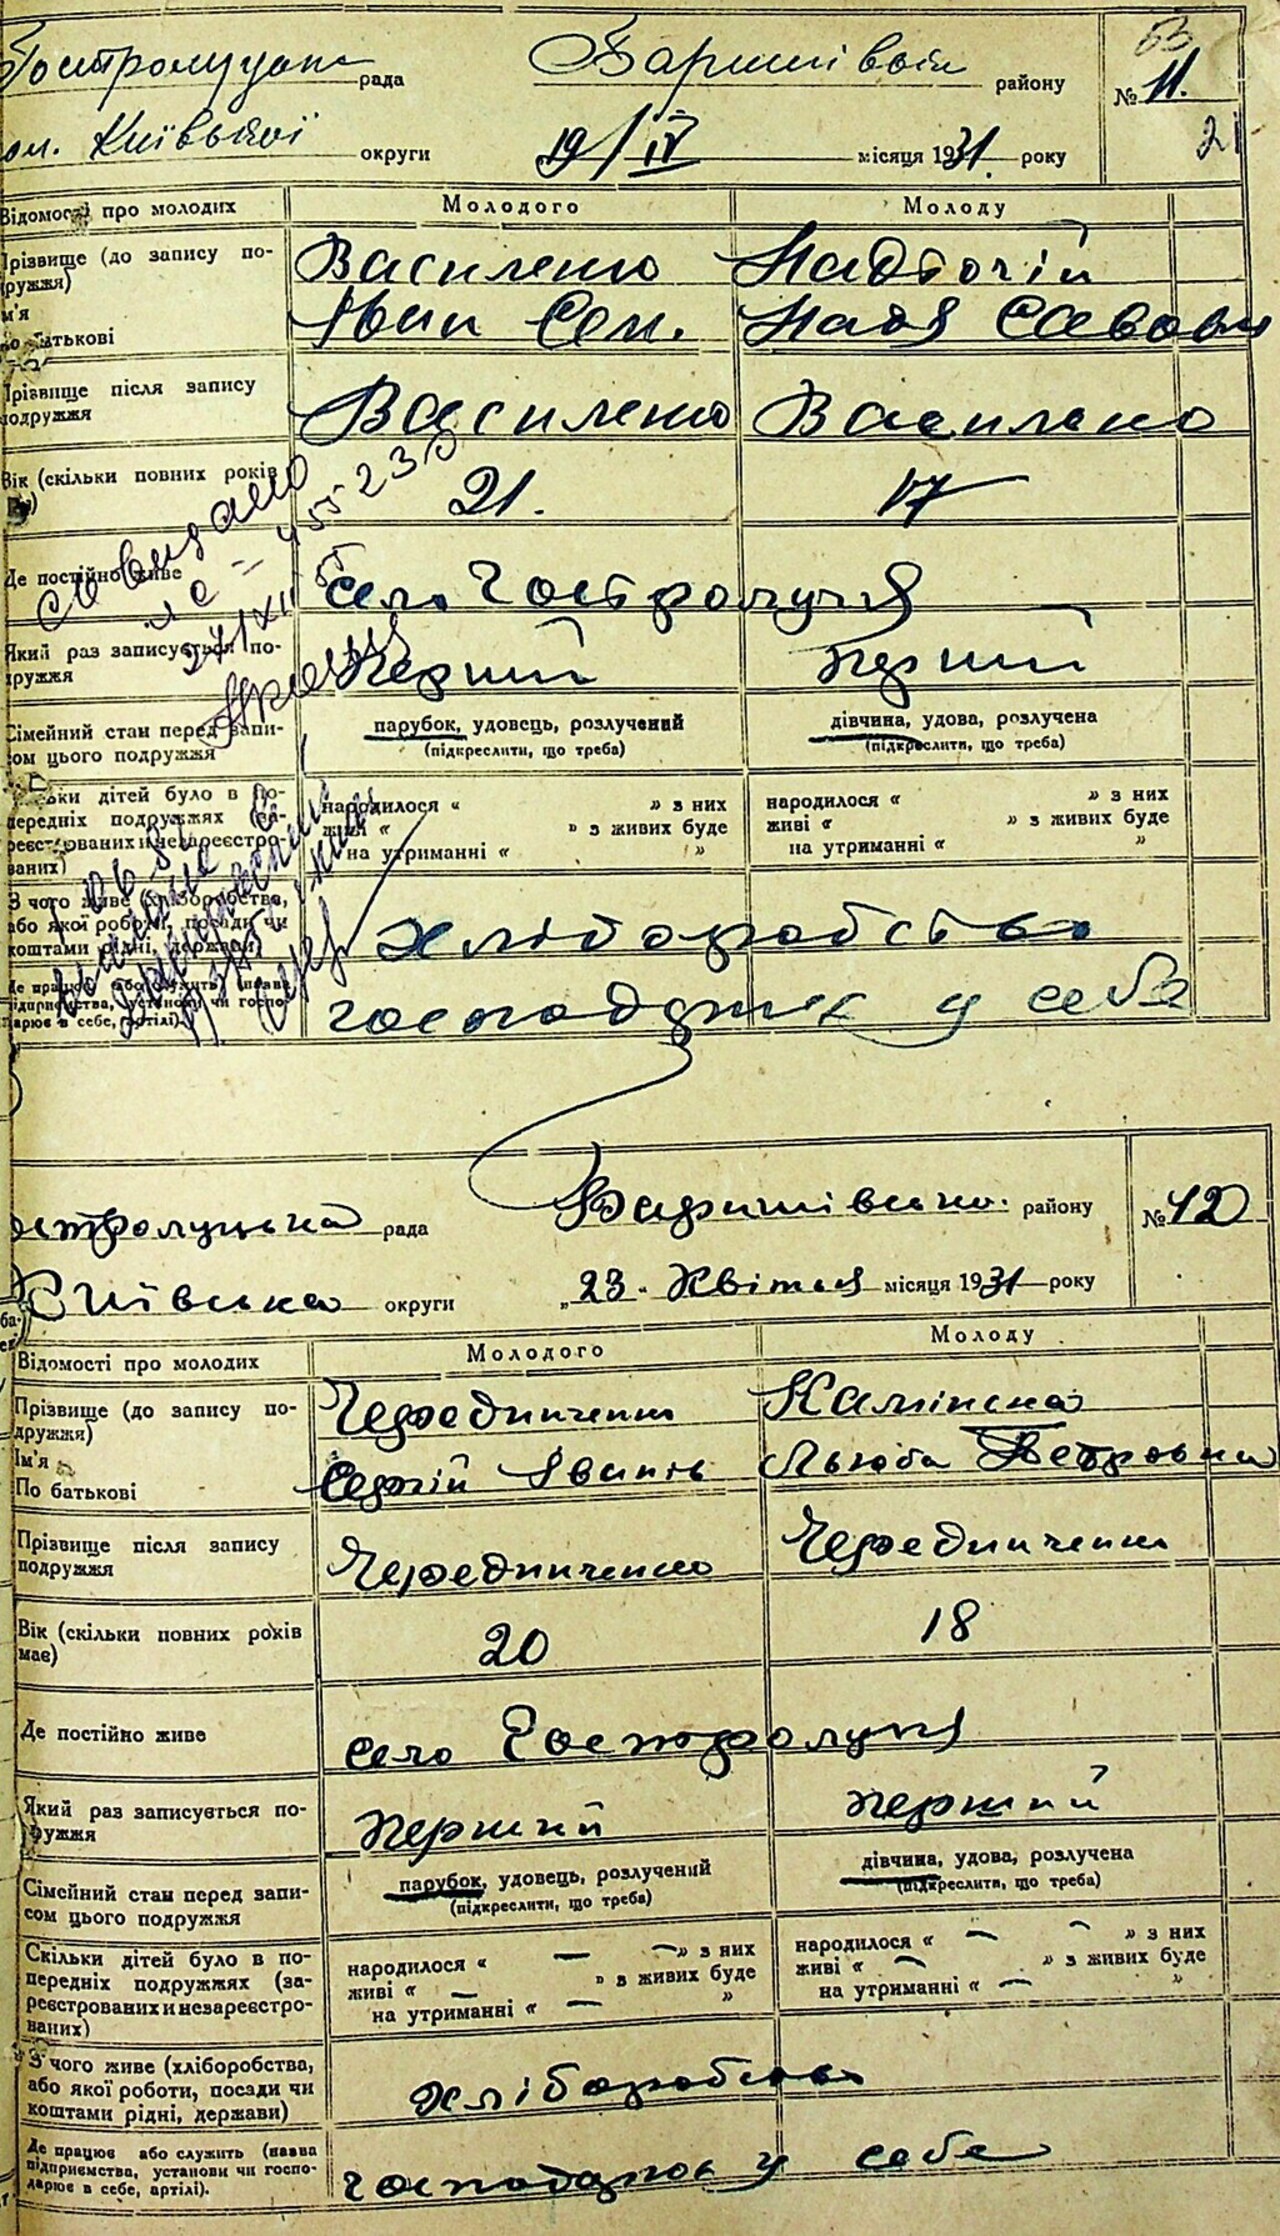 53
Гостролуцька рада Баришівськ району № 11.
ол. Київської округи 19/IV місяця 1931. року
21
Відомості про молодих Молодого Молоду
Прізвище (до запису по-
дружжя) Василенко Надточій
Ім'я
По батькові Іван Сем. Надя Савовн
Прізвище після запису
подружжя Василенко Василенко
Вік (скільки повних років
21. 17
Де постійно живе село Гостролуччя
Який раз записується по-
дружжя Перший Перший
Сімейний стан перед запи-
сом цього подружжя
парубок, удовець, розлучений
(підкреслити, що треба)
дівчина, удова, розлучена
(підкреслити, що треба)
Скільки дітей було в по-
передніх подружжях (за-
реєстрованих и незареєстро-
ваних)
народилося “ ” з них
живі “ ” з живих буде
на утриманні “ ”
народилося “ ” з них
живі “ ” з живих буде
на утриманні “ ”
З чого живе (хліборобства,
або якої роботи, посади чи
коштами рідні, держави) хліборобство
Де працює або служить (назва
підприємства, установи чи госпо-
дарює в себе, артілі). господарює у себе
остролуцька рада Баришівсько. району № 12
Київська округи „23“ Квітня місяця 1931 року
Відомості про молодих Молодого Молоду
Прізвище (до запису по-
дружжя) Чередниченко Камінска
Ім'я
По батькові Сергій Іванів Любa Петровна
Прізвище після запису
подружжя Чередниченко Чередниченко
Вік (скільки повних років
має) 20 18
Де постійно живе село Гостролуччя
Який раз записується по-
дружжя перший перший
Сімейний стан перед запи-
сом цього подружжя
парубок, удовець, розлучений
(підкреслити, що треба)
дівчина, удова, розлучена
(підкреслити, що треба)
Скільки дітей було в по-
передніх подружжях (за-
реєстрованих и незареєстро-
ваних)
народилося “ — —” з них
живі “ — ” з живих буде
на утриманні “ — ”
народилося “ — —” з них
живі “ — ” з живих буде
на утриманні “ — ”
З чого живе (хліборобства,
або якої роботи, посади чи
коштами рідні, держави) хліборобства
Де працює або служить (назва
підприємства, установи чи госпо-
дарює в себе, артілі). господарює у себе